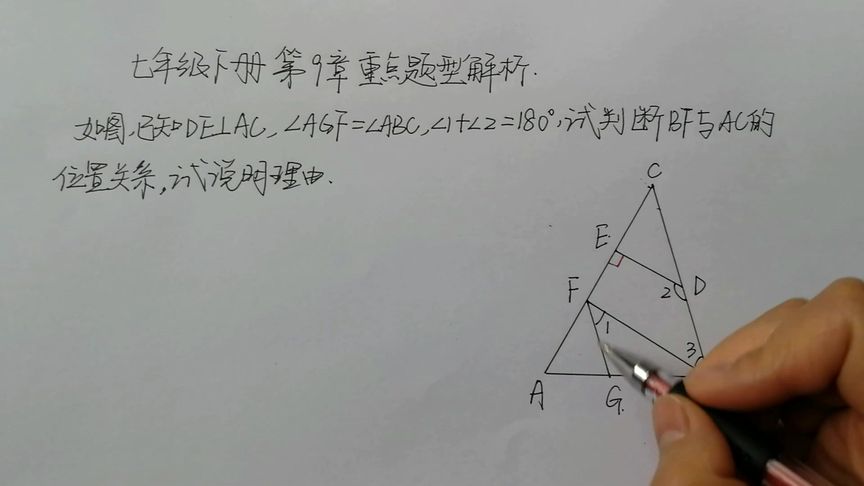 七年级下册第9章重点题型解析.
如图,已知DE⊥AC,∠AGF=∠ABC,∠1+∠2=180°,试判断BF与AC的
位置关系,试说明理由.
C
E
F
2
D
1
3
A
G